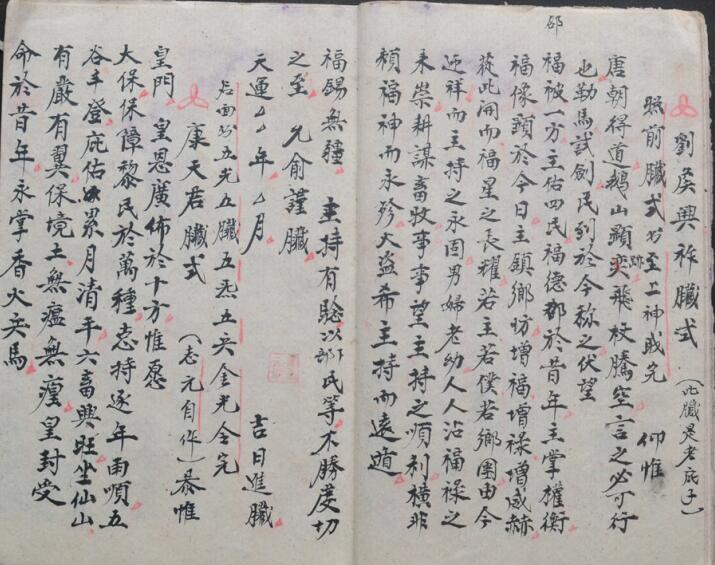 邵
劉侯興祚臟式（此臟是老底子）
照前臟式为至上神戝完 仰惟
唐朝得道鵝山顯跡奕飛杖騰空言之必可行
也勒馬試劍民到於今称之伏望
福被一方主佑四民福德都於昔年主掌權衡
福像顕於今日主鎮鄉坊增福增祿增威赫
從此開而福星之長耀若主若僕若鄉團由今
迎祥而主持之永固男婦老幼人人沾福祿之
來崇耕謀畜牧事事望主持之順利橫非
頼福神而永殄大盜希主持而遠遁
福錫無疆 主持有賒以鄒氏等不勝虔切
之至 允俞謹臟
天運厶厶年厶月 吉日進臟
占面为五光五臟五炁五英金光全完
康天君臟式（志元自作）恭惟
皇門 皇恩廣佈於十方惟愿
大保保障黎民於萬種志持逐年雨順五
谷丰登庇佑累月清平六畜興旺坐仙山
有嚴有翼保境土無瘟無瘴皇封受
命於昔年永掌香火兵馬